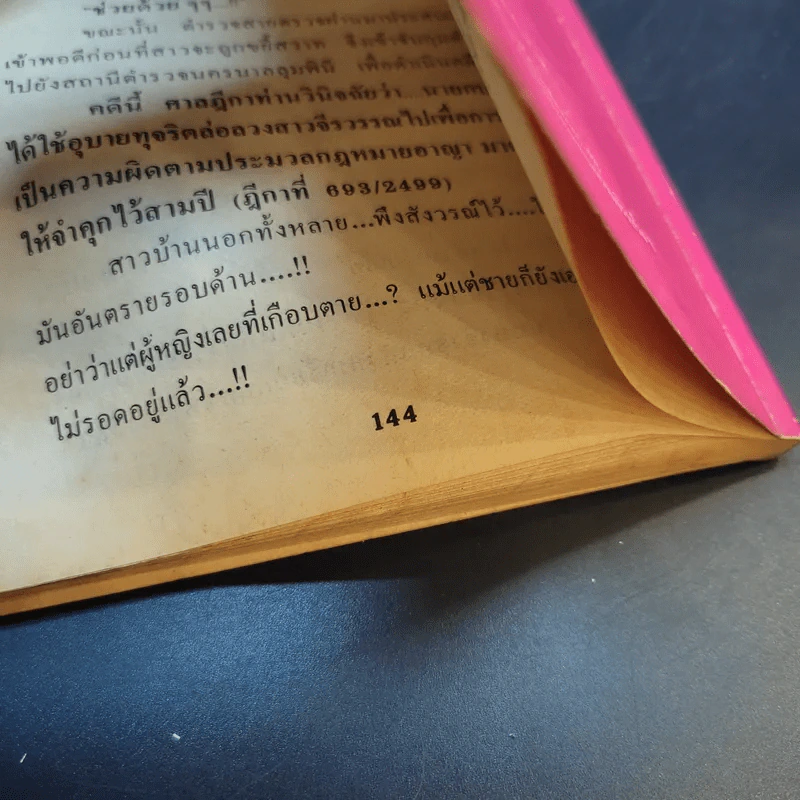 "ช่วยด้วย ๆๆ..."
ขณะนั้น ตำรวจสายตรวจผ่านมาประสบ
เข้าพอดีก่อนที่สาวจะถูกขยี้สวาท จึงเข้าจับกุม
ไปยังสถานีตำรวจนครบาลลุมพินี เพื่อดำเนินคดี
คดีนี้ ศาลฎีกาท่านวินิจฉัยว่า...
ได้ใช้อุบายทุจริตล่อลวงสาวจีรวรรณไปเพื่อการ
เป็นความผิดตามประมวลกฎหมายอาญา
ให้จำคุกไว้สามปี (ฎีกาที่ 693/2499)
สาวบ้านนอกทั้งหลาย...พึงสังวรณ์ไว้....
มันอันตรายรอบด้าน....!!
อย่าว่าแต่ผู้หญิงเลยที่เกือบตาย...? แม้แต่ชายก็ยัง
ไม่รอดอยู่แล้ว...!!
144